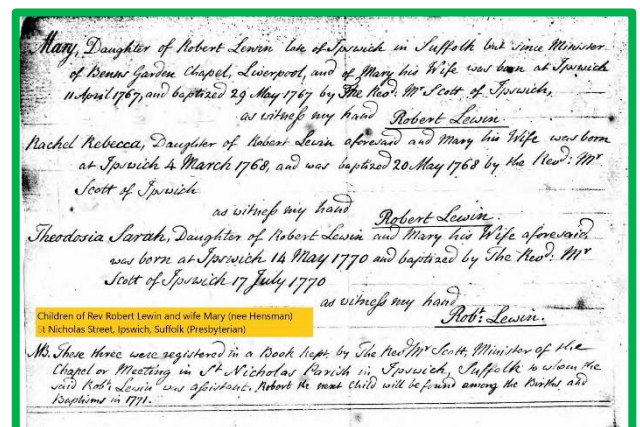 Mary, Daughter of Robert Lewin late of Ipswich in Suffolk but since Minister
of Benns Garden Chapel, Liverpool, and of Mary his Wife was born at Ipswich
11 April 1767, and baptized 29 May 1767 by The Revd: Mr Scott of Ipswich,
as witness my hand Robert Lewin
Rachel Rebecca, Daughter of Robert Lewin aforesaid and Mary his Wife was born
at Ipswich 4 March 1768, and was baptized 20 May 1768 by the Revd: Mr
Scott of Ipswich
as witness my hand Robert Lewin
Theodosia Sarah, Daughter of Robert Lewin and Mary his Wife aforesaid
was born at Ipswich 14 May 1770 and baptized by The Revd: Mr
Scott of Ipswich 17 July 1770
as witness my hand
Robt: Lewin.
Children of Rev Robert Lewin and wife Mary (nee Hensman)
St Nicholas Street, Ipswich, Suffolk (Presbyterian)
NB. These three were registered in a Book kept by The Revd Mr Scott, Minister of the
Chapel or Meeting in St Nicholas Parish in Ipswich, Suffolk to whom the
said Robt: Lewin was assistant. Robert the next Child will be found among the Births and
Baptisms in 1771.